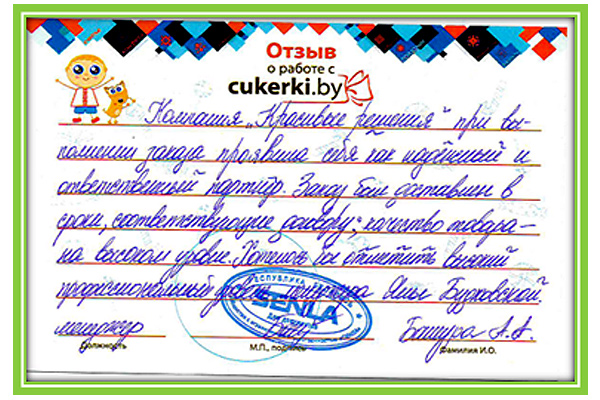 Отзыв
о работе с
cukerki.by
Компания „Красивые решения" при вы-
полнении заказа проявила себя как надёжный и
ответственный партнёр. Заказ был доставлен в
сроки, соответствующие договору; качество товара -
на высоком уровне. Хотелось бы отметить высокий
профессиональный уровень менеджера Яны Бузковской.
менеджер Башура А. А.
Должность М.П., подпись Фамилия И.О.
РЕСПУБЛИКА
SENLA